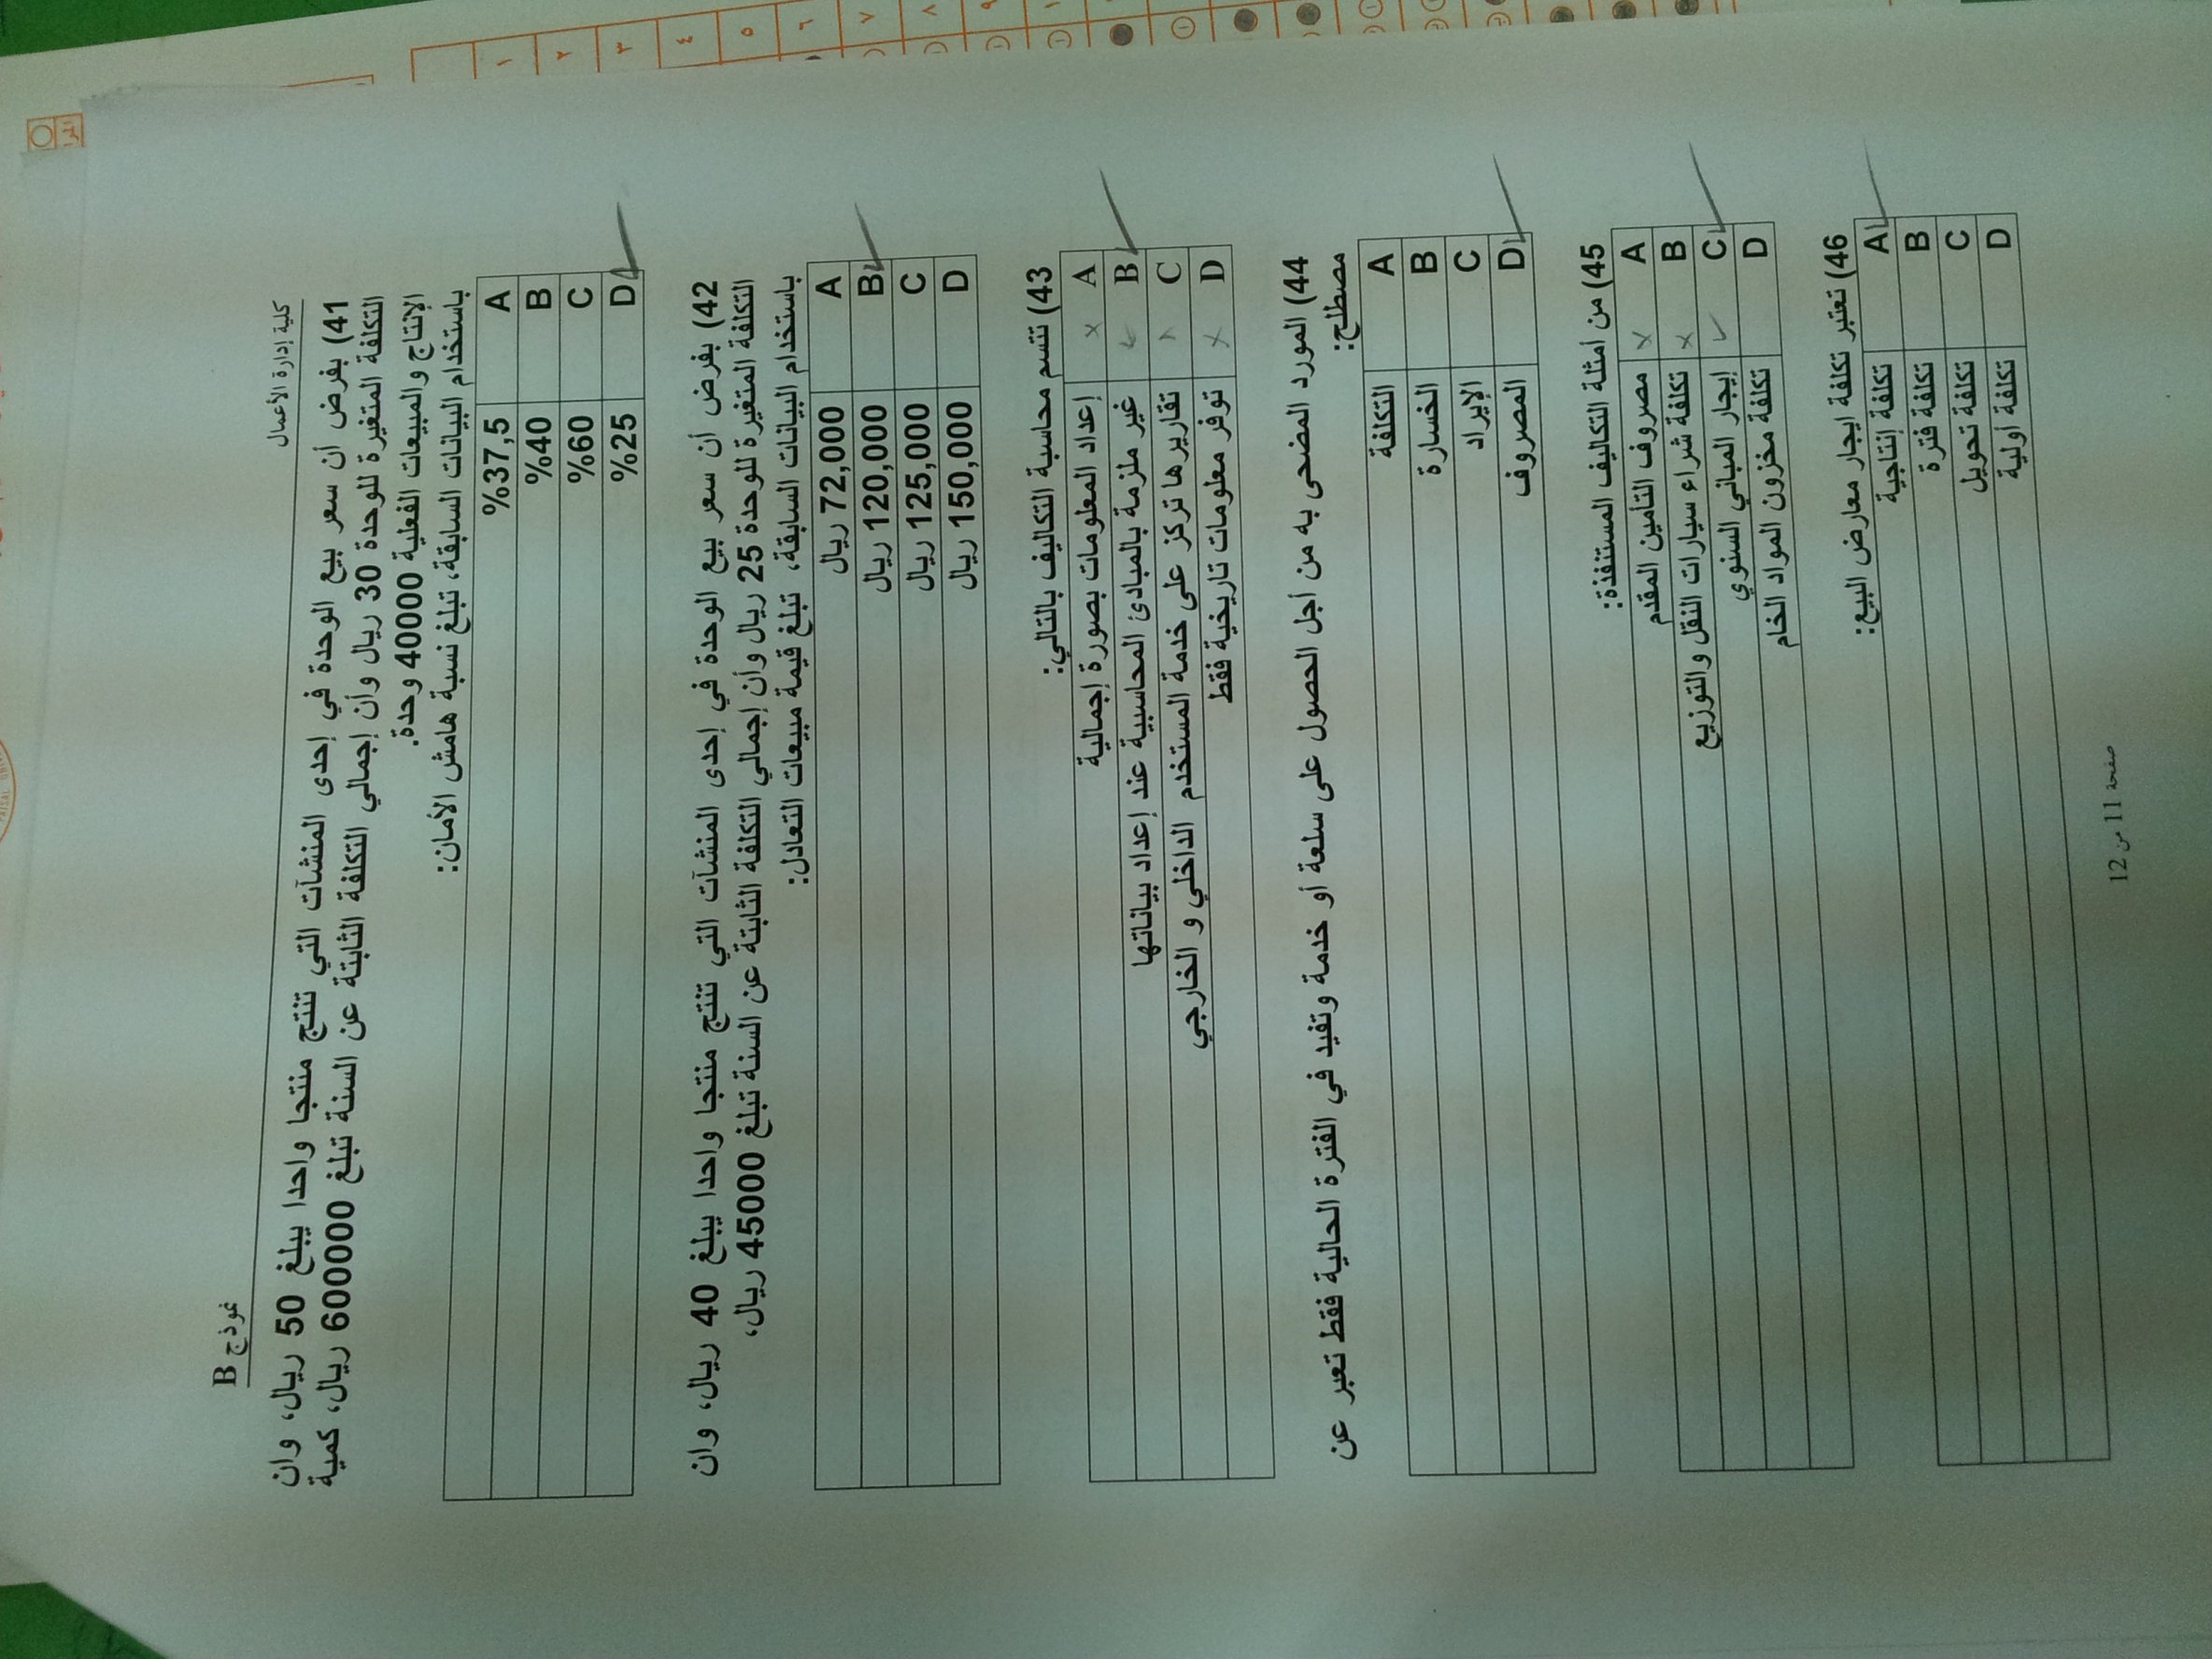 نموذج B
كلية إدارة الأعمال
41) بفرض أن سعر بيع الوحدة في إحدى المنشآت التي تنتج منتجا واحدا يبلغ 50 ريال، وان
التكلفة المتغيرة للوحدة 30 ريال وأن إجمالي التكلفة الثابتة عن السنة تبلغ 600000 ريال، كمية
الإنتاج والمبيعات الفعلية 40000 وحدة.
باستخدام البيانات السابقة، تبلغ نسبة هامش الأمان:
A %37,5
B %40
C %60
D %25
42) بفرض أن سعر بيع الوحدة في إحدى المنشآت التي تنتج منتجا واحدا يبلغ 40 ريال، وان
التكلفة المتغيرة للوحدة 25 ريال وأن إجمالي التكلفة الثابتة عن السنة تبلغ 45000 ريال،
باستخدام البيانات السابقة، تبلغ قيمة مبيعات التعادل:
A 72,000 ريال
B 120,000 ريال
C 125,000 ريال
D 150,000 ريال
43) تتسم محاسبة التكاليف بالتالي:
A إعداد المعلومات بصورة إجمالية
B غير ملزمة بالمبادئ المحاسبية عند إعداد بياناتها
C تقاريرها تركز على خدمة المستخدم الداخلي و الخارجي
D توفر معلومات تاريخية فقط
44) المورد المضحى به من أجل الحصول على سلعة أو خدمة وتفيد في الفترة الحالية فقط تعبر عن
مصطلح:
A التكلفة
B الخسارة
C الإيراد
D المصروف
45) من امثلة التكاليف المستنفذة:
A مصروف التامين المقدم
B تكلفة شراء سيارات النقل والتوزيع
C إيجار المباني السنوي
D تكلفة مخزون المواد الخام
46) تعتبر تكلفة ايجار معارض البيع:
A تكلفة إنتاجية
B تكلفة فترة
C تكلفة تحويل
D تكلفة أولية
صفحة 11 من 12
١
٢
٣
٤
٥
٦
٧
٨
٩